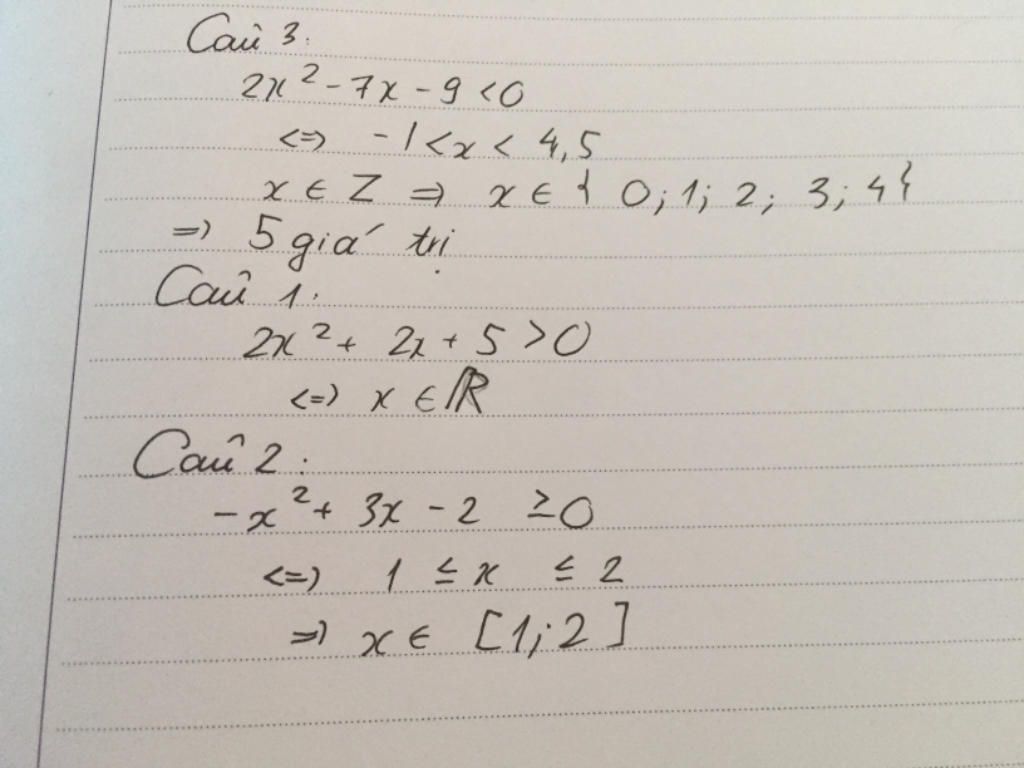 Câu 3:
2x² - 7x - 9 < 0
<=> -1 < x < 4,5
x ∈ Z => x ∈ { 0; 1; 2; 3; 4 }
=> 5 giá trị
Câu 1:
2x² + 2x + 5 > 0
<=> x ∈ ℝ
Câu 2:
-x² + 3x - 2 ≥ 0
<=> 1 ≤ x ≤ 2
=> x ∈ [1; 2]